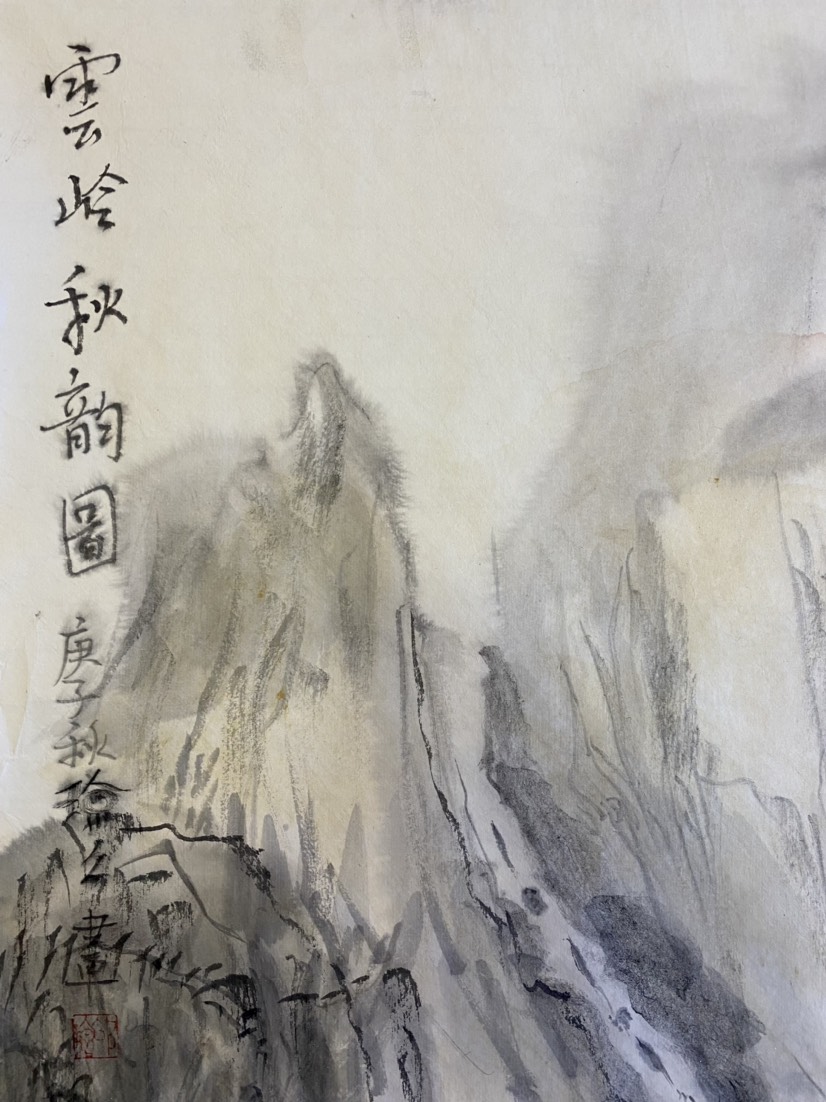 雲岭秋韵圖
庚子秋 公畫